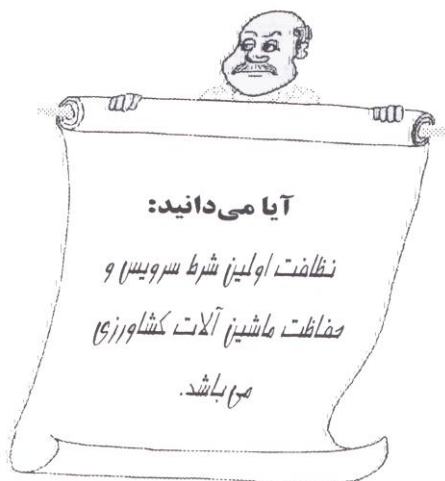 آیا می‌دانید:
نظافت اولین شرط سرویس و
حفاظت ماشین آلات کشاورزی
می‌باشد.